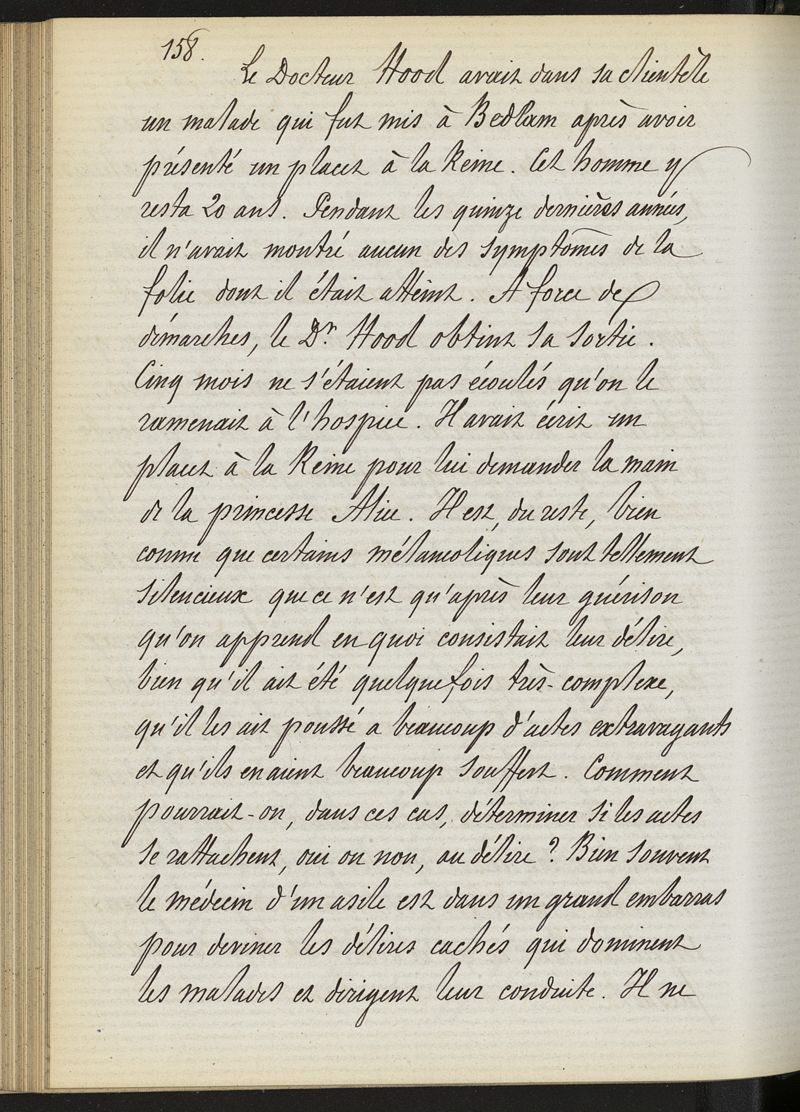 158.
Le Docteur Hood avait dans sa clientèle
un malade qui fut mis à Bedlam après avoir
présenté un placet à la Reine. Cet homme y
resta 20 ans. Pendant les quinze dernières années,
il n'avait montré aucun des symptomes de la
folie dont il était atteint. A force de
démarches, le Dr. Hood obtint sa sortie.
Cinq mois ne s'étaient pas écoulés qu'on le
ramenait à l'hospice. Il avait écrit un
placet à la Reine pour lui demander la main
de la princesse Alice. Il est, du reste, bien
connu que certains mélancoliques sont tellement
silencieux que ce n'est qu'après leur guérison
qu'on apprend en quoi consistait leur délire,
bien qu'il ait été quelquefois très-complexe,
qu'il les ait poussé a beaucoup d'actes extravagants
et qu'ils en aient beaucoup souffert. Comment
pourrait-on, dans ces cas, déterminer si les actes
se rattachent, oui ou non, au délire ? Bien souvent
le médecin d'un asile est dans un grand embarras
pour deviner les délires cachés qui dominent
les malades et dirigent leur conduite. Il ne